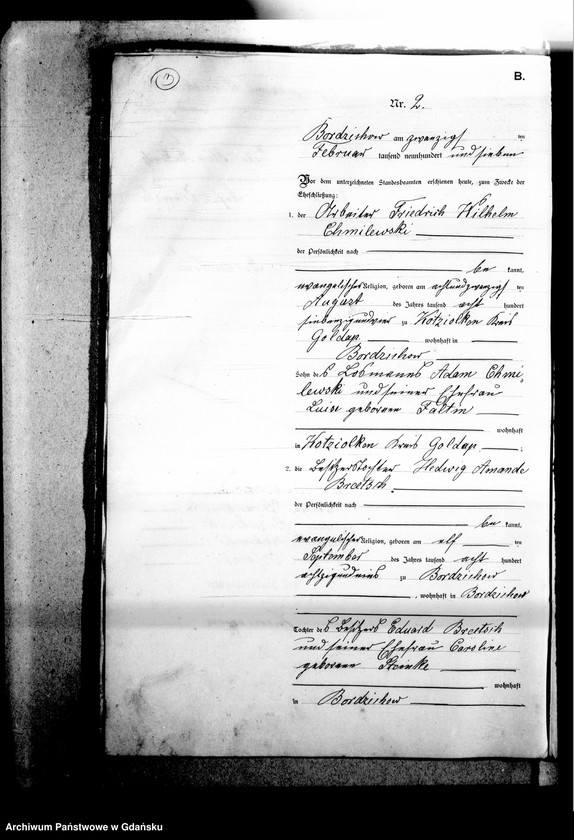 B.
Nr. 2.
Bordzichow am zwanzigsten
Februar tausend neunhundert und sieben
Vor dem unterzeichneten Standesbeamten erschienen heute, zum Zwecke der
Eheschließung:
1. der Arbeiter Friedrich Wilhelm
Chmilewski
der Persönlichkeit nach
be kannt,
evangelischer Religion, geboren am achtundzwanzigsten
August des Jahres tausend acht hundert
zu Kotziolken Kreis
Goldap, wohnhaft in
Bordzichow
Sohn des Losmanns Adam Chmi-
lewski und seiner Ehefrau
Luise geborenen Faltin
wohnhaft
in Kotziolken Kreis Goldap ;
2. die Besitzertochter Hedwig Amande
Broetsch,
der Persönlichkeit nach
be kannt,
evangelischer Religion, geboren am elf ten
September des Jahres tausend acht hundert
achtzigundeins zu Bordzichow
, wohnhaft in Bordzichow
Tochter des Besitzers Eduard Broetsch
und seiner Ehefrau Caroline
geborenen Steinke
wohnhaft
in Bordzichow
Archiwum Państwowe w Gdańsku